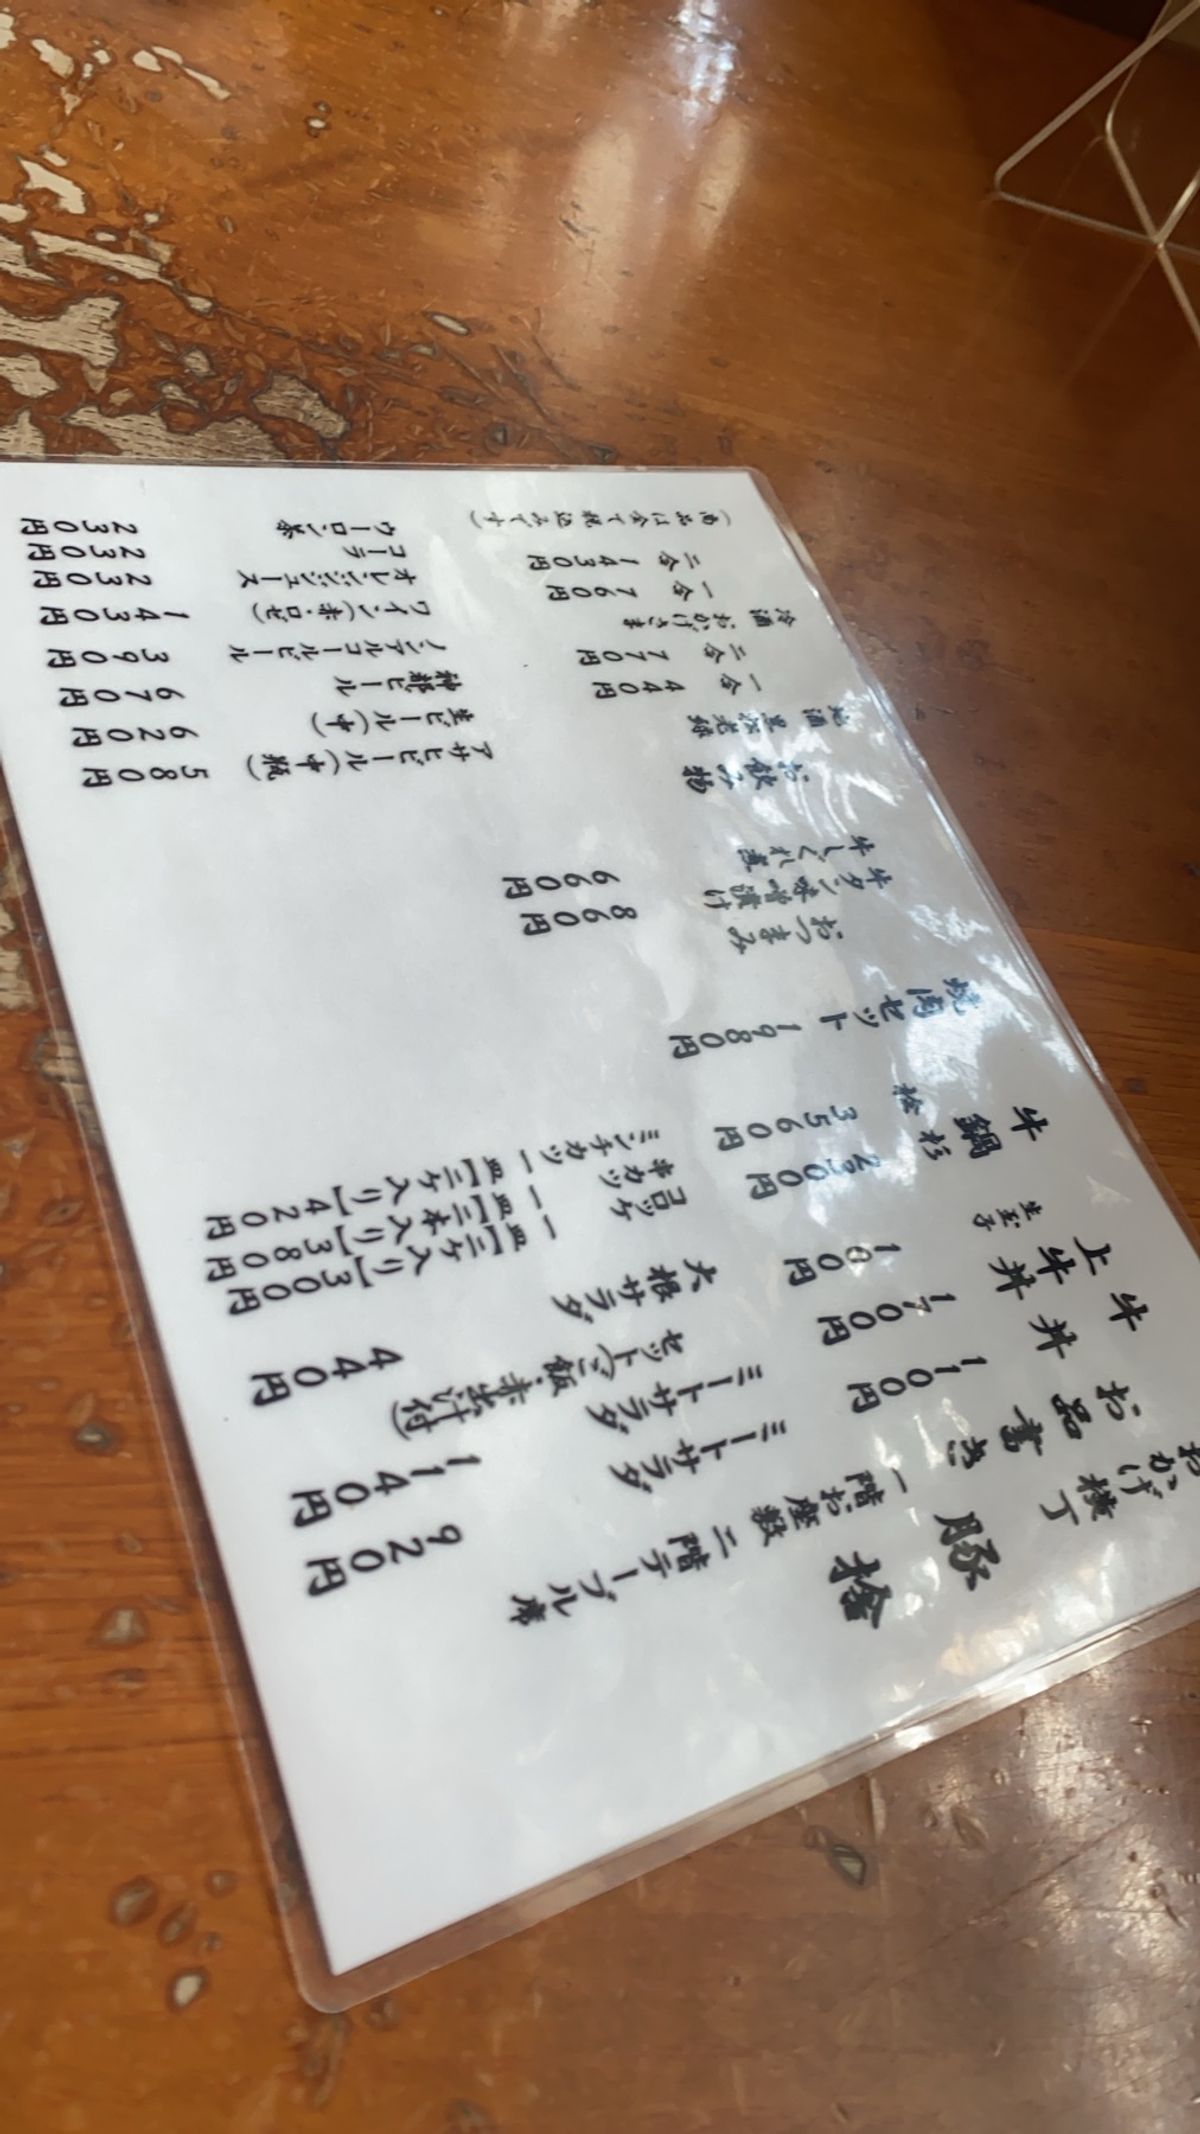 おかげ横丁
豚捨
お品書き
一階お座敷
二階テーブル席
牛丼 1100円
上牛丼 1700円
生玉子 100円
牛鍋 杉 2300円
桧 3560円
焼肉セット 1980円
おつまみ
牛タン味噌漬け 860円
牛しぐれ煮 660円
お飲み物
地酒
一合 440円
二合 770円
冷酒 おかげさま
一合 760円
二合 1430円
(商品は全て税込みです)
ミートサラダ 920円
ミートサラダ
セット(ご飯・赤出汁付) 1140円
大根サラダ 440円
コロッケ 一皿【三ケ入り】300円
串カツ 一皿【三本入り】380円
ミンチカツ 一皿【三ケ入り】420円
アサヒビール(中瓶) 580円
生ビール(中) 620円
神都ビール 670円
ノンアルコールビール 390円
ワイン(赤・ロゼ) 1430円
オレンジジュース 230円
コーラ 230円
ウーロン茶 230円